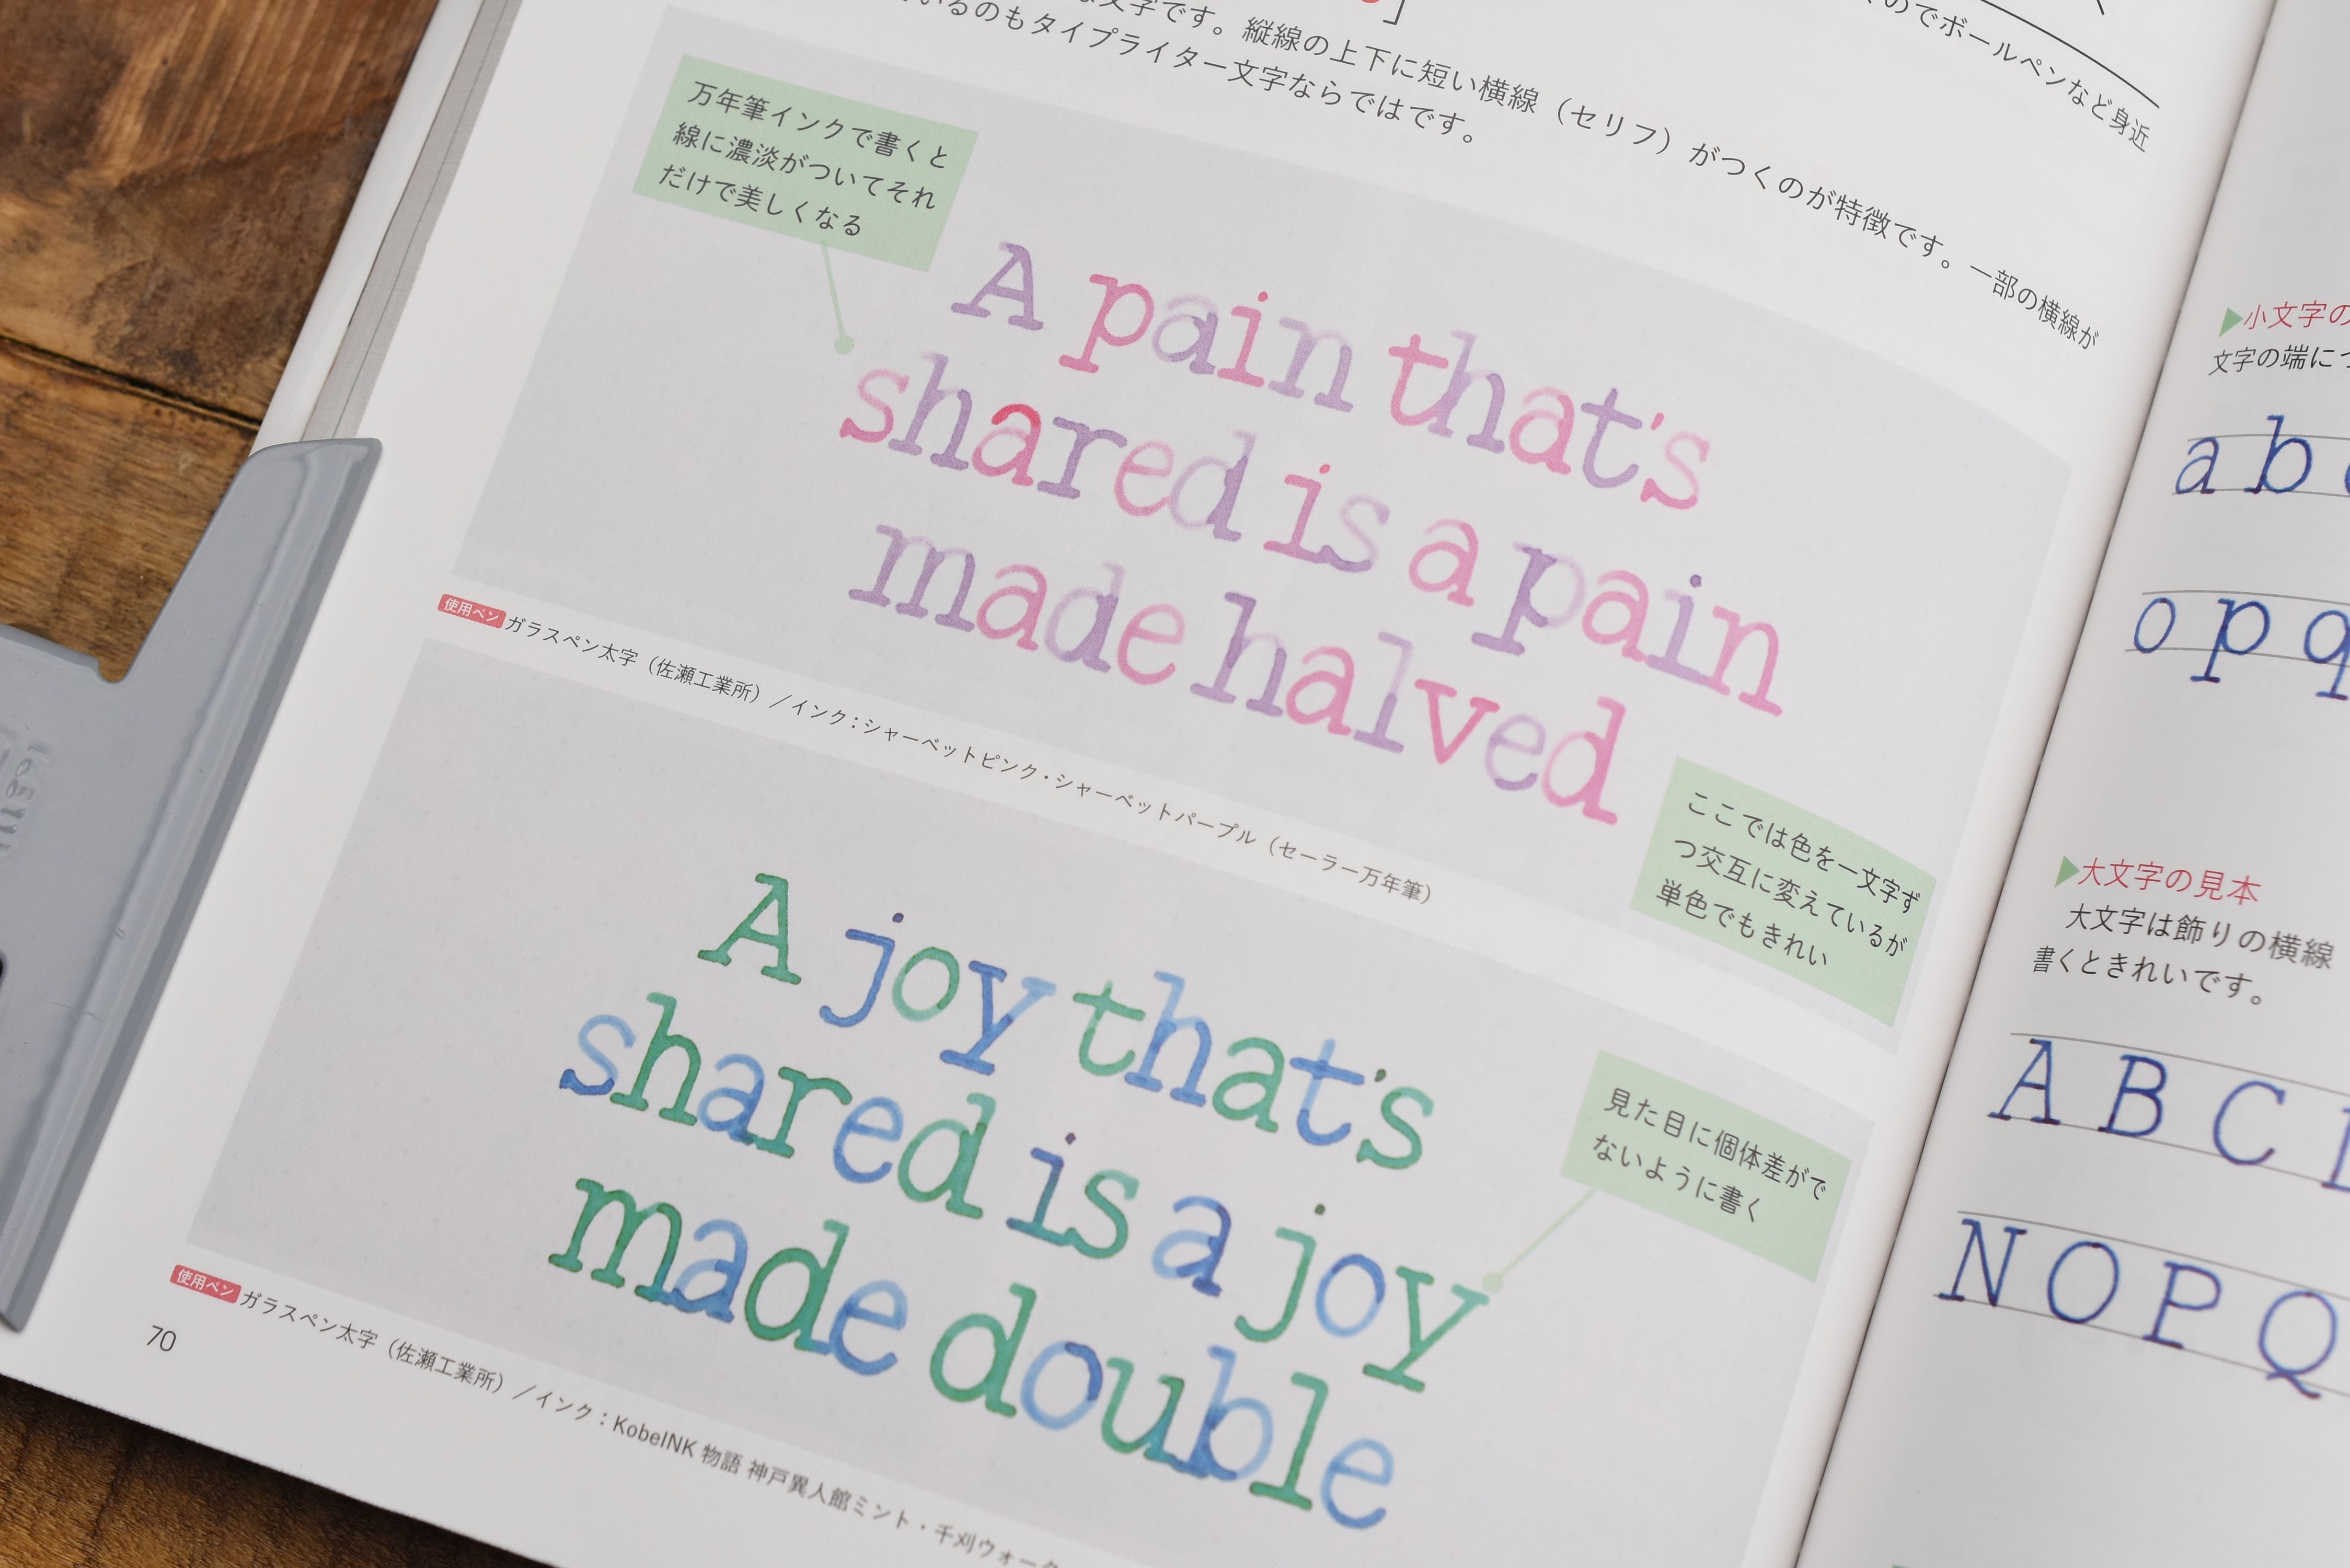 文字です。縦線の上下に短い横線（セリフ）がつくのが特徴です。一部の横線が
いるのもタイプライター文字ならではです。
のでボールペンなど身近
万年筆インクで書くと
線に濃淡がついてそれ
だけで美しくなる
A pain that's
shared is a pain
made halved
ここでは色を一文字ず
つ交互に変えているが
単色でもきれい
使用ペン ガラスペン太字（佐瀬工業所）／インク：シャーベットピンク・シャーベットパープル（セーラー万年筆）
A joy that's
shared is a joy
made double
見た目に個体差がで
ないように書く
使用ペン ガラスペン太字（佐瀬工業所）／インク：KobeINK 物語 神戸異人館ミント・千刈ウォータ
70
小文字の
文字の端に
a b
o p q
大文字の見本
大文字は飾りの横線
書くときれいです。
A B C
N O P Q